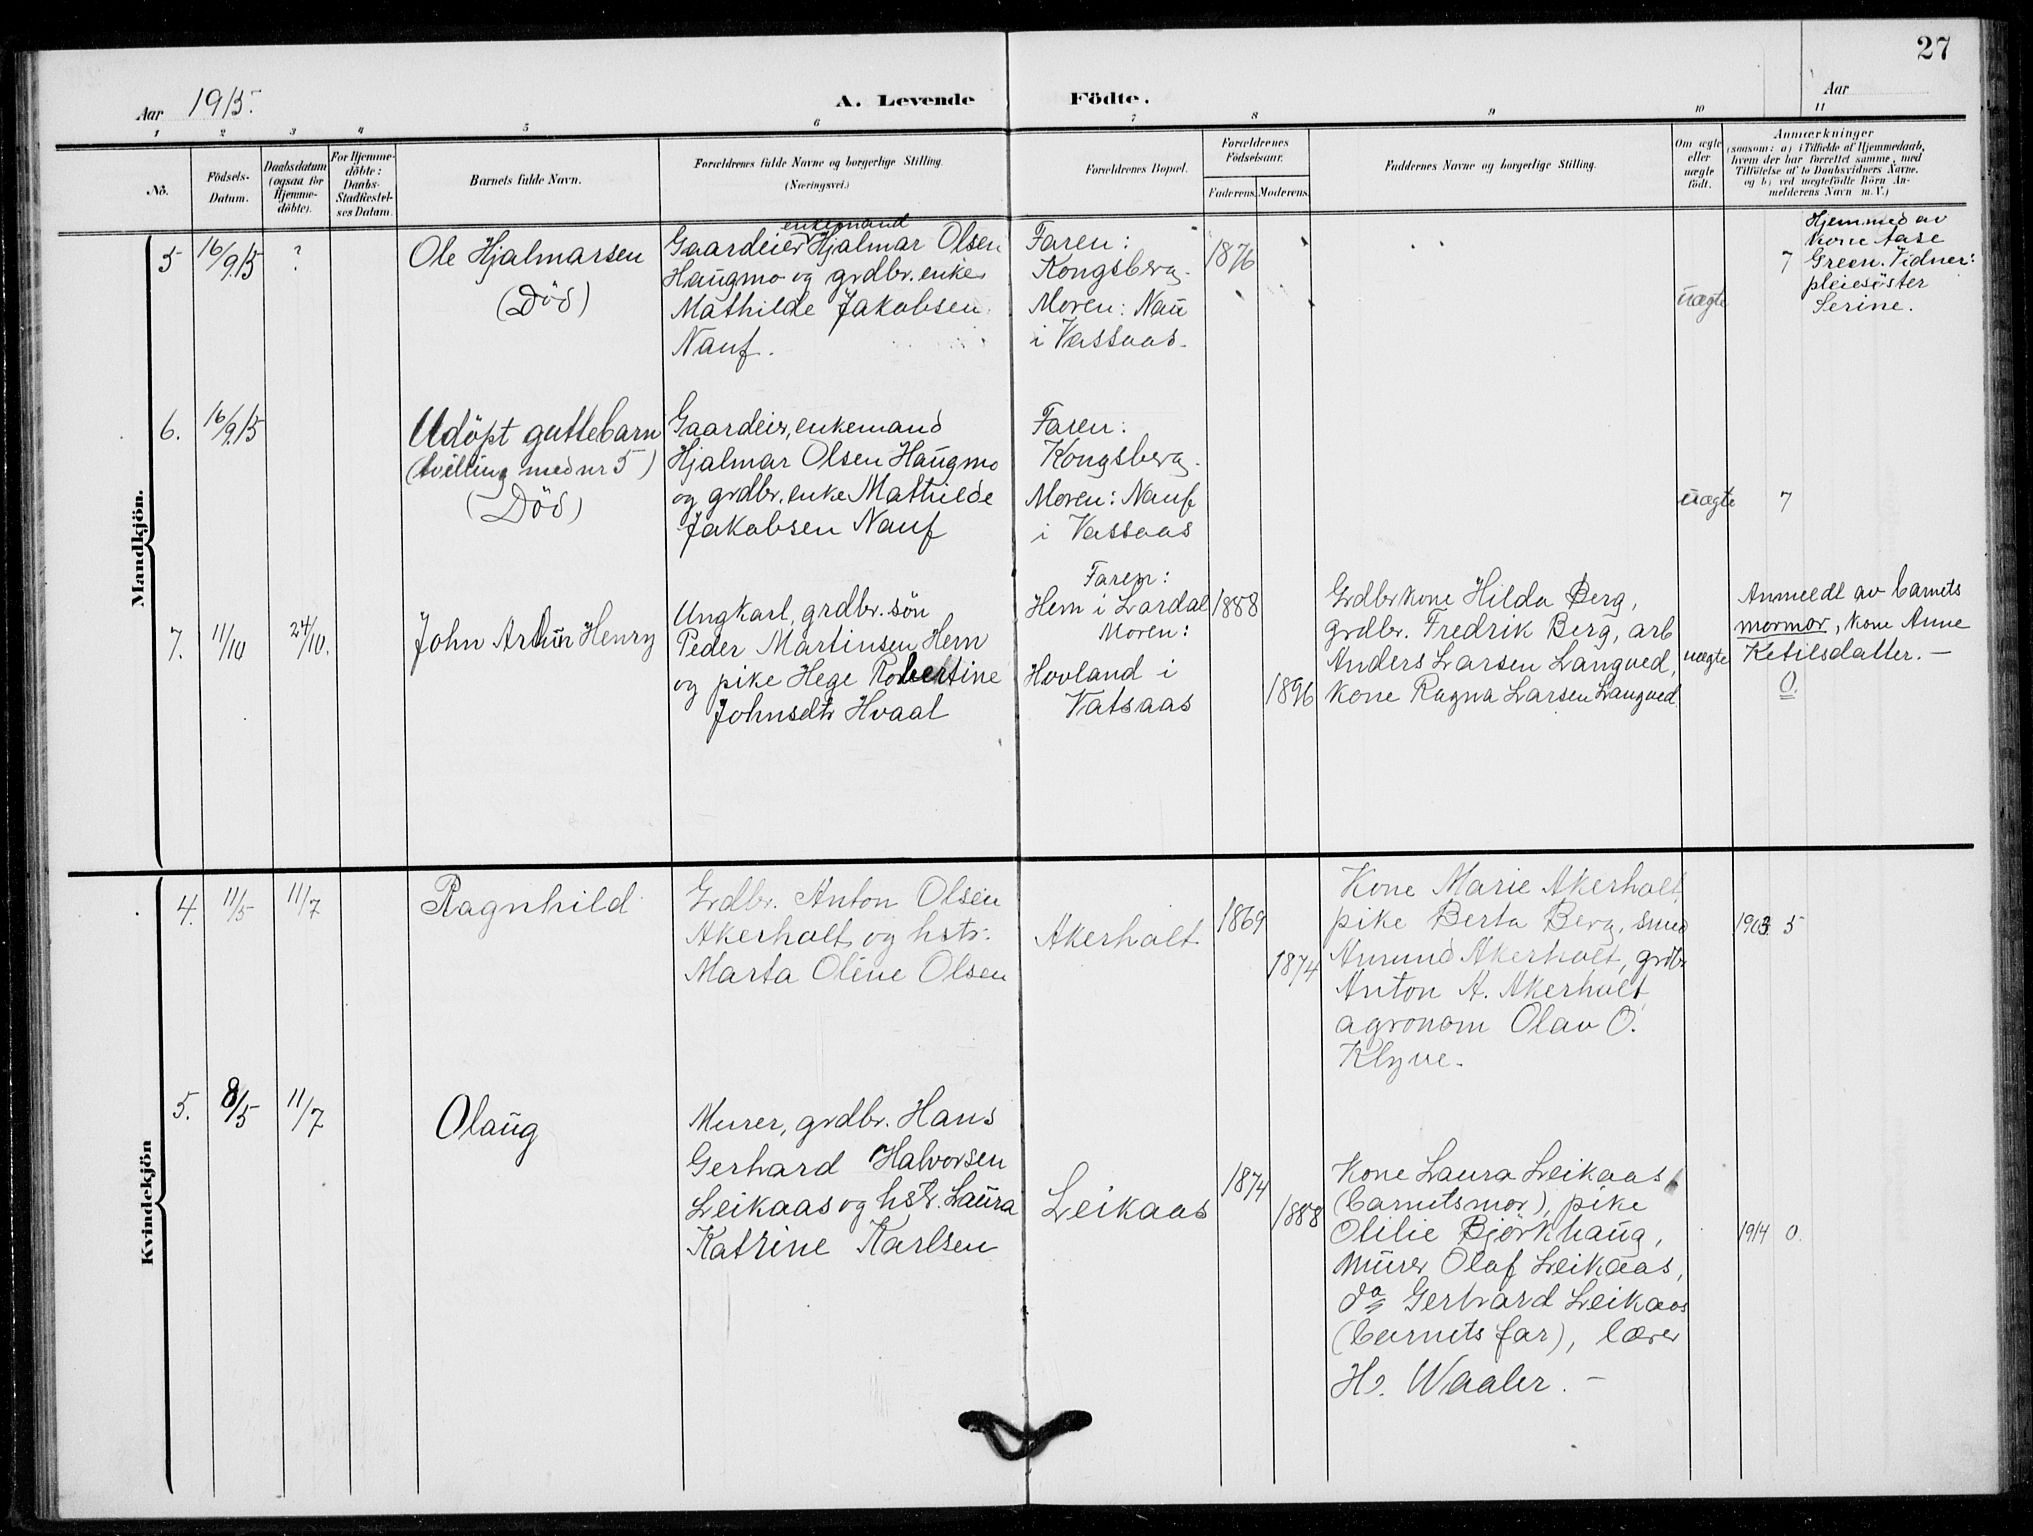 27
Aar 1915.
A. Levende Födte.
Aar
1 2 3 4 5 6 7 8 9 10 11
No.
Födsels-
Datum.
Daabsdatum
(ogsaa for
Hjemme-
döbte).
For Hjemme-
döbte:
Daabs-
Stadfæstel-
ses Datum.
Barnets fulde Navn.
Forældrenes fulde Navne og borgerlige Stilling.
(Næringsvei.)
Forældrenes Bopæl.
Forældrenes
Födselsaar.
Faderens. Moderens.
Faddernes Navne og borgerlige Stilling.
Om ægte
eller
uægte
födt.
Anmærkninger
(saasom: a) i Tilfælde af Hjemmedaab,
hvem der har forrettet samme, med
Tilföielse af to Daabsvidners Navne.
og b) ved uægtefödte Börn An-
melderens Navn m. V.)
Mandkjön.
5 16/9.15 ?
Ole Hjalmarsen
(Död)
enkemand
Gaardeier Hjalmar Olsen
Haugmo og grdbr. enke
Mathilde Jakobsen
Nauf.
Faren:
Kongsberg.
Moren: Nau
i Vassaas.
1876
uægte
7
Hjemmed av
kone Aase
Green. Vidner:
pleiesöster
Serine.
6. 16/9.15
Udöpt guttebarn
(tvilling med nr 5)
(Död)
Gaardeier, enkemand
Hjalmar Olsen Haugmo
og grdbr. enke Mathilde
Jakobsen Nauf
Faren:
Kongsberg.
Moren: Nauf
i Vassaas
uægte 7
7. 11/10 24/10.
John Artur Henry
Ungkarl, grdbr. sön
Peder Martinsen Hem
og pike Hege Robertine
Johnsdtr Hvaal
Faren:
Hem i Lardal
Moren:
Hovland i
Vatsaas
1888
1896
Grdbrkone Hilda Berg,
grdbr. Fredrik Berg, arb
Anders Larsen Langved,
kone Ragna Larsen Langved
uægte
Anmeldt av barnets
mormor, kone Anne
Ketilsdatter. –
0.
Kvindekjön
4. 11/5 11/7
Ragnhild
Grdbr. Anton Olsen
Akerholt og hstr.
Marta Oline Olsen
Akerholt
1869
1874
Kone Marie Akerholt,
pike Berta Berg, smed
Amund Akerholt, grdbr
Anton A. Akerholt,
agronom Olav O.
Klyve.
1903 5
5. 8/5 11/7
Olaug
Murer, grdbr. Hans
Gerhard Halvorsen
Leikaas og hstr. Laura
Katrine Karlsen
Leikaas
1874
1888
Kone Laura Leikaas
(barnetsmor), pike
Olilie Björkhaug,
murer Olaf Leikaas,
do Gerhard Leikaas
(barnets far), lærer
H. Waaler. –
1914 0.